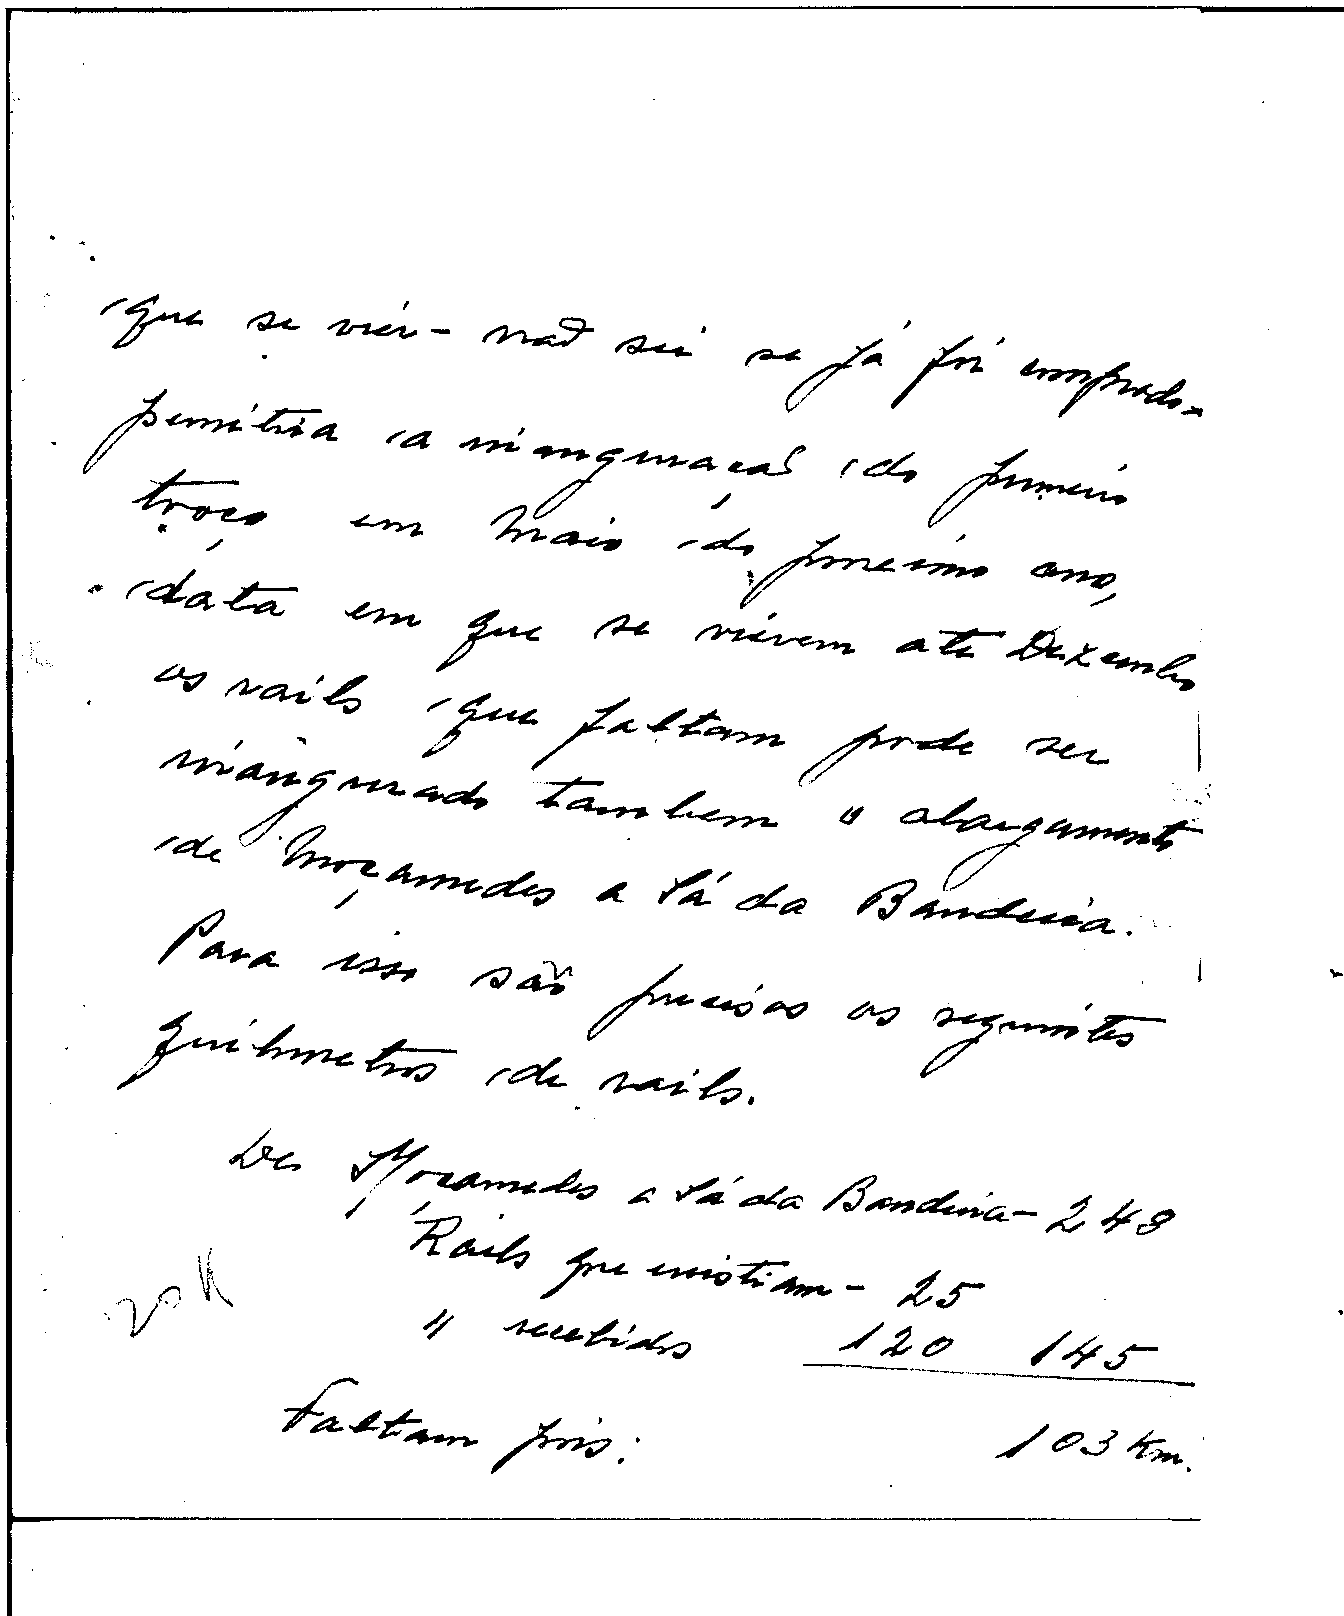 que se vier - não sei se já foi comprado -
permitia a inauguração do primeiro
troço em Maio do proximo ano,
data em que se vierem até Dezembro
os rails que faltam pode ser
inaugurado tambem o alargamento
de Moçamedes a Sá da Bandeira.
Para isso são precisos os seguintes
quilometros de rails.
De Moçamedes a Sá da Bandeira - 248
Rails que existiam - 25
" recebidos 120 145
Faltam pois: 103 Km.